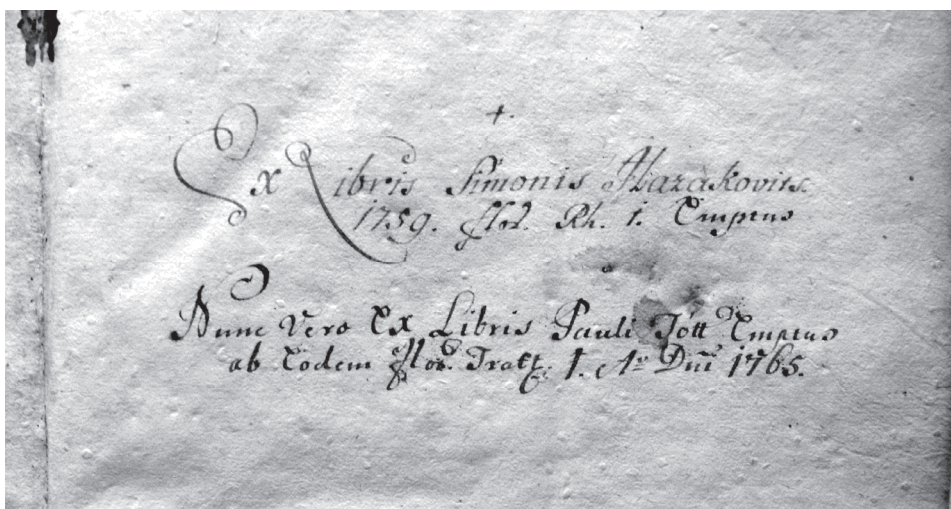 +.
Ex Libris Simonis Hazakovits.
1759. flor. Rh. 1. Emptus
Nunc Vero Ex Libris Pauli Tott Emptus
ab Eodem flor. 1. Aō Dnī 1765.